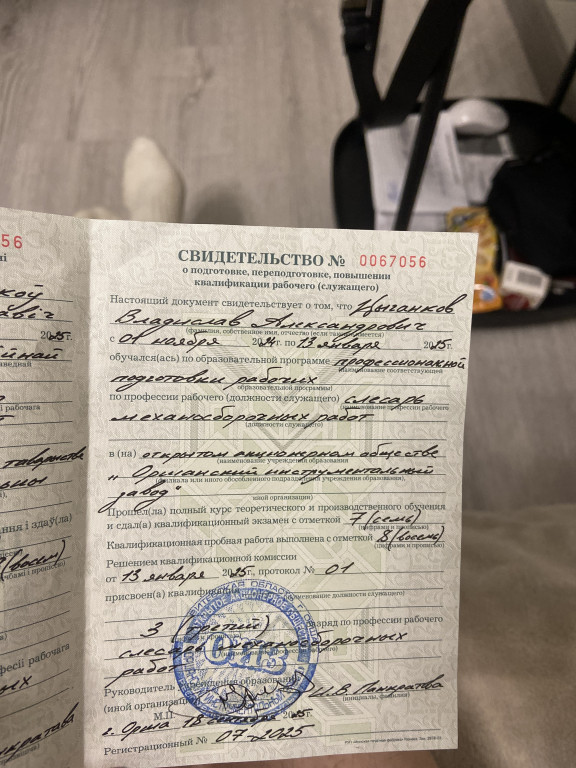 56
СВИДЕТЕЛЬСТВО № 0067056
о подготовке, переподготовке, повышении
квалификации рабочего (служащего)
Настоящий документ свидетельствует о том, что Цыганков
Владислав Александрович
(фамилия, собственное имя, отчество (если таковое имеется))
с 01 ноября 2024г. по 13 января 2025г.
обучался(ась) по образовательной программе профессиональной
(наименование соответствующей
подготовки рабочих
образовательной программы)
по профессии рабочего (должности служащего) слесарь
(наименование профессии рабочего
механосборочных работ
(должности служащего)
в (на) открытом акционерном обществе
(наименование учреждения образования
„Оршанский инструментальный
(филиала или иного обособленного подразделения учреждения образования),
завод"
иной организации)
Прошел(ла) полный курс теоретического и производственного обучения
и сдал(а) квалификационный экзамен с отметкой 7 (семь)
(цифрами и прописью)
Квалификационная пробная работа выполнена с отметкой 8 (восемь)
(цифрами и прописью)
Решением квалификационной комиссии
от 13 января 2025г. протокол № 01
присвоен(а) квалификация
(наименование должности служащего)
3 (третий) разряд по профессии рабочего
слесарь механосборочных
работ
Руководитель учреждения образования
(иной организации) И.В. Панкратова
(инициалы, фамилия)
М.П.
г. Орша 18 2025г.
Регистрационный № 07-2025